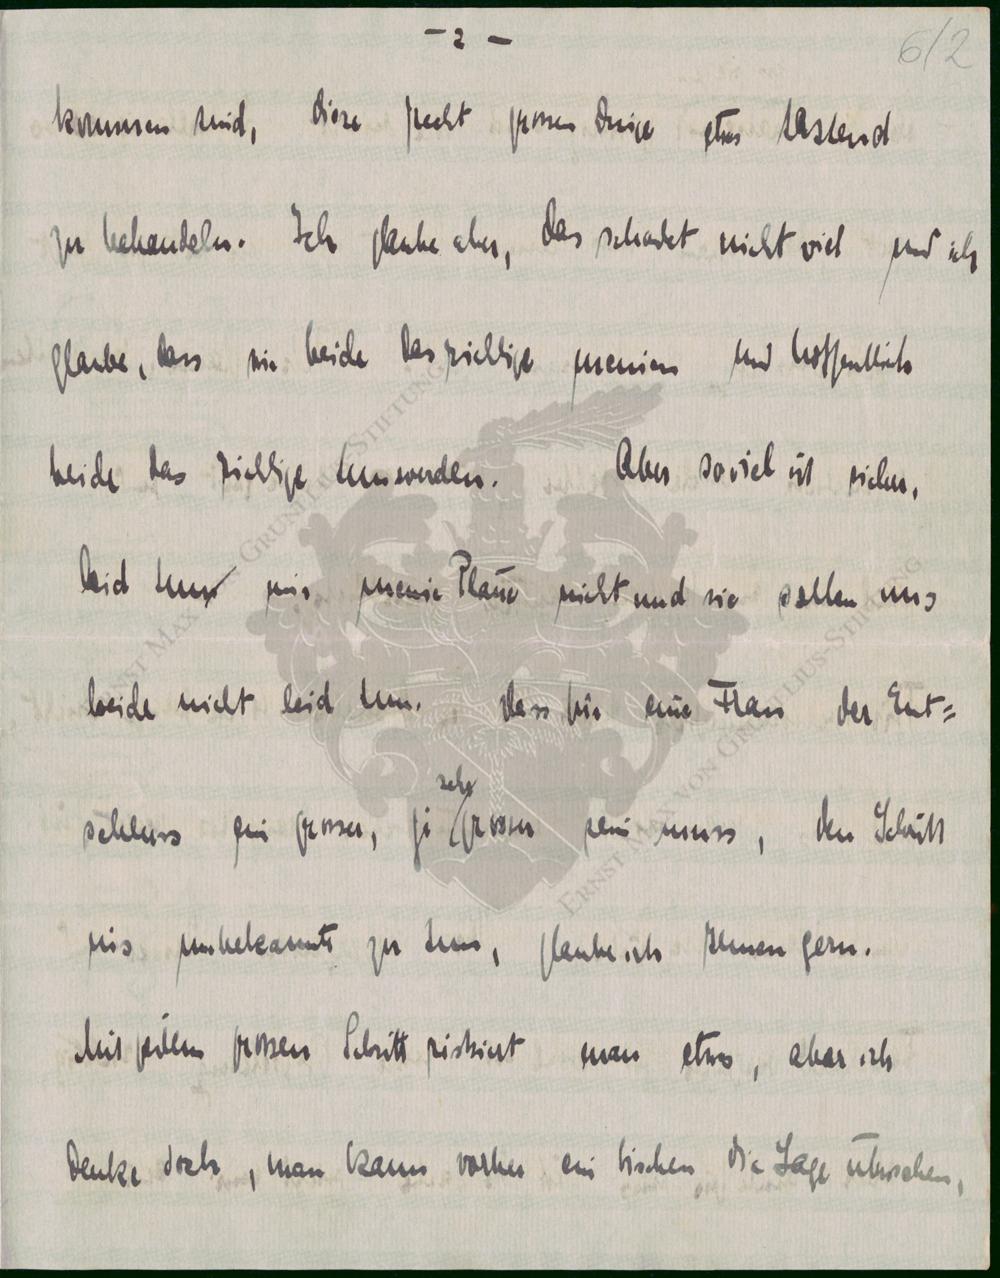 - 2 -
6/2
kommen sind, diese recht grossen Dinge etwas tastend
zu behandeln. Ich glaube aber, das schadet nicht viel und ich
glaube, dass wir beide das richtige meinen und hoffentlich
beide das richtige tun werden. Aber soviel ist sicher,
leid tun mir meine Pläne nicht und sie sollen uns
beide nicht leid tun. Dass für eine Frau der Ent=
schluss ein grosser, ja sehr grosser sein muss, den Schritt
ins unbekannte zu tun, glaube ich Ihnen gern.
Mit jedem grossen Schritt riskiert man etwas, aber ich
denke doch, man kann vorher ein bischen die Lage übersehen,
ERNST MAX VON GRUNELIUS-STIFTUNG
ERNST MAX VON GRUNELIUS-STIFTUNG